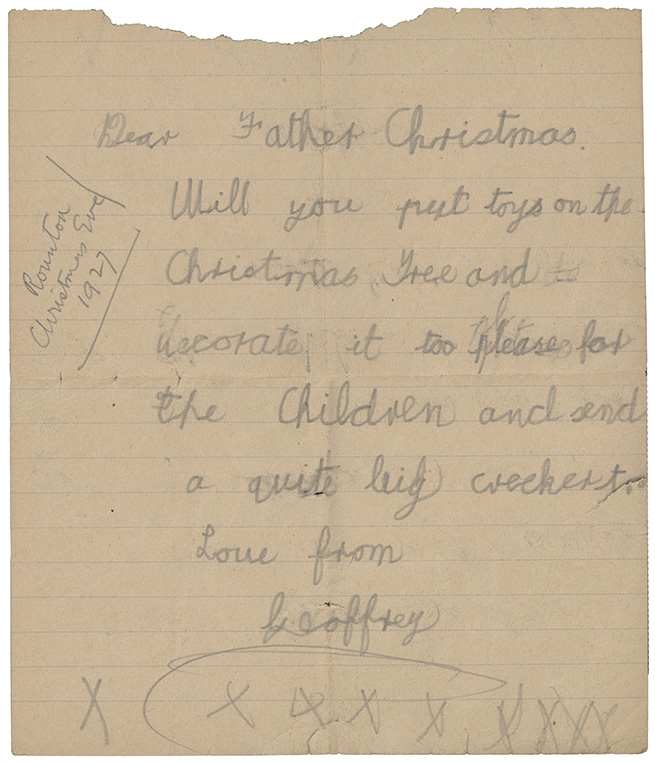 Dear Father Christmas.
Will you put toys on the
Christmas Tree and
decorate it too please for
the Children and send
a quite big crecker too
Love from
Geoffrey
X X X X X X X X X
Rounton
Christmas Eve
1927